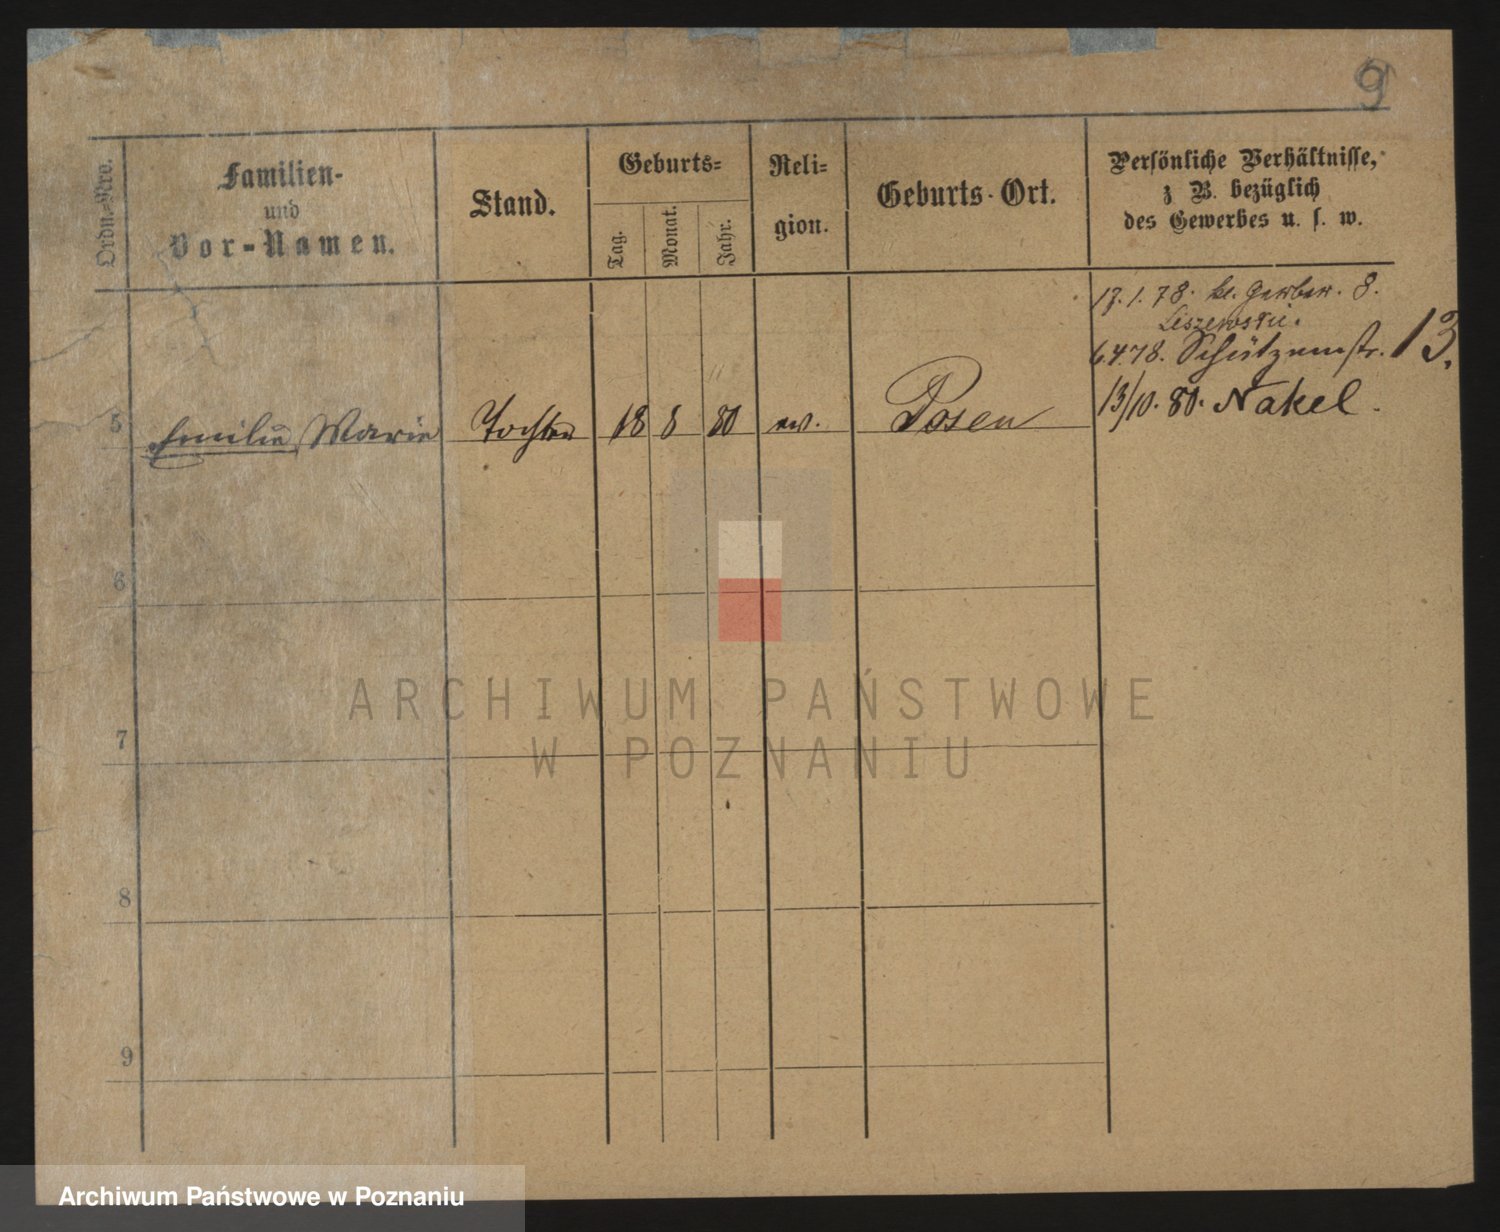 9
Ordn.-Nro.
Familien-
und
Vor-Namen.
Stand.
Geburts=
Tag.
Monat.
Jahr.
Reli-
gion.
Geburts-Ort.
Persönliche Verhältnisse,
z B. bezüglich
des Gewerbes u. s. w.
17.1.78. kl. Gerber. 8.
Liszewski.
6478. Schützenstr. 13.
13/10. 80. Nakel.
5 Emilie Marie Tochter 18 8 80 ev. Posen
6
7
8
9
ARCHIWUM PAŃSTWOWE
W POZNANIU
Archiwum Państwowe w Poznaniu